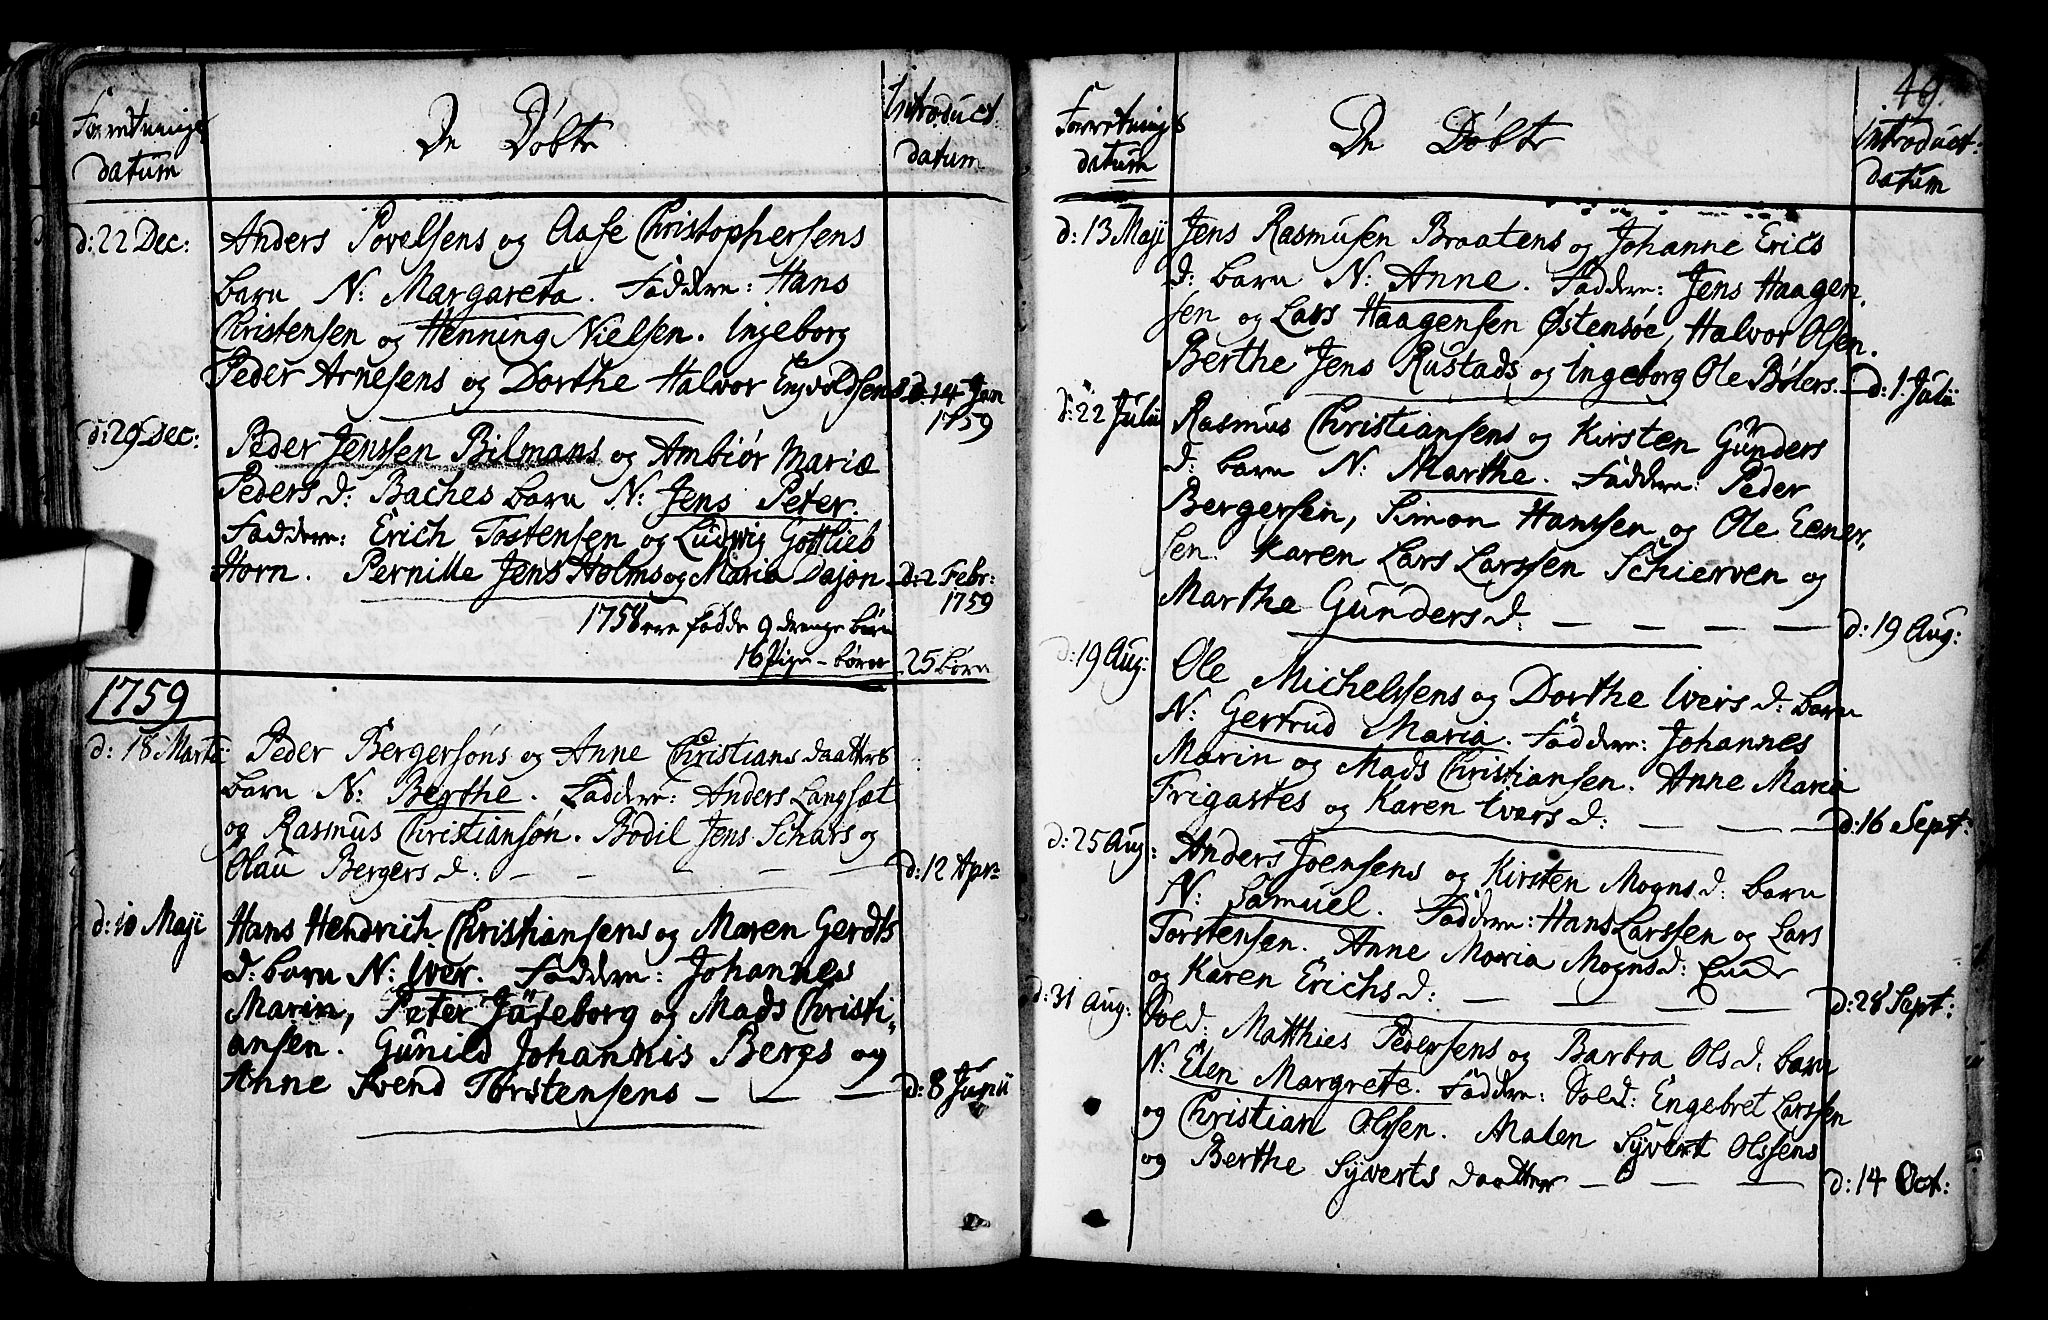 Forretnings
datum
De Døbte
Introduct.
datum
d: 22 Dec:
Anders Povelsens og Aase Christophersens
barn N: Margareta. Faddere: Hans
Christensen og Henning Nielsen. Ingeborg
Peder Arnesens og Dorthe Halvor Engvoldsens
d. 14 Jan
1759
d: 29 Dec:
Peder Jenssen Bilmans og Ambiør Mariæ
Peders d: Baches barn N: Jens Peter.
Faddere: Erich Tostensen og Ludwig Gottlieb
Horn. Pernille Jens Holms og Maria Dajon
d: 2 Febr:
1759
1758 ere fødde 9 drenge børn
16 Pige-børn
25 børn
1759
d: 18 Martii
Peder Bergersøns og Anne Christians daatters
barn N: Berthe. Faddere: Anders Langsæt
og Rasmus Christiansøn. Bodil Jens Schars og
Olau Bergers d: — — — —
d: 12 Apr:
d: 10 Maji
Hans Hendrich Christiansens og Maren Gerdts
d: barn N: Iver. Faddere: Johannes
Marin, Peter Jüteborg og Mads Christi-
ansen. Gunild Johannis Bergs og
Anne Svend Torstensens — — —
d: 8 Junii
49.
Forretnings
datum
De Døbte
Introduct:
datum
d: 13 Maji
Jens Rasmusen Braatens og Johanne Erics
d: barn N: Anne. Faddere: Jens Haagen-
sen og Lars Haagensen Østensøe, Halvor Olsen.
Berthe Jens Rustads og Ingeborg Ole Bølers.
d: 1. Julii
d: 22 Julii
Rasmus Christiansens og Kirsten Gunders
d: barn N: Marthe. Faddere: Peder
Bergersen, Simon Hanssen og Ole Eener-
sen. Karen Lars Larssen Schierven og
Marthe Gunders d: — — — —
d: 19 Aug:
d: 19 Aug:
Ole Michelssens og Dorthe Ivers d: barn
N: Gertrud Maria. Faddere: Johannes
Marin og Mads Christiansen. Anne Maria
Frigastes og Karen Ivers d: — — —
d: 16 Sept:
d: 25 Aug:
Anders Joensens og Kirsten Mogns d: barn
N: Samuel. Faddere: Hans Larssen og Lars
Torstensen. Anne Maria Mogns d:
og Karen Erichs d: — — — —
d: 28 Sept:
d: 31 Aug:
Sold: Matthies Pedersens og Barbra Ols d: barn
N: Elen Margrete. Faddere: Sold: Engebret Larssen
og Christian Olssen. Malen Syvert Olssens
og Berthe Syverts daatter — — —
d: 14 Oct: